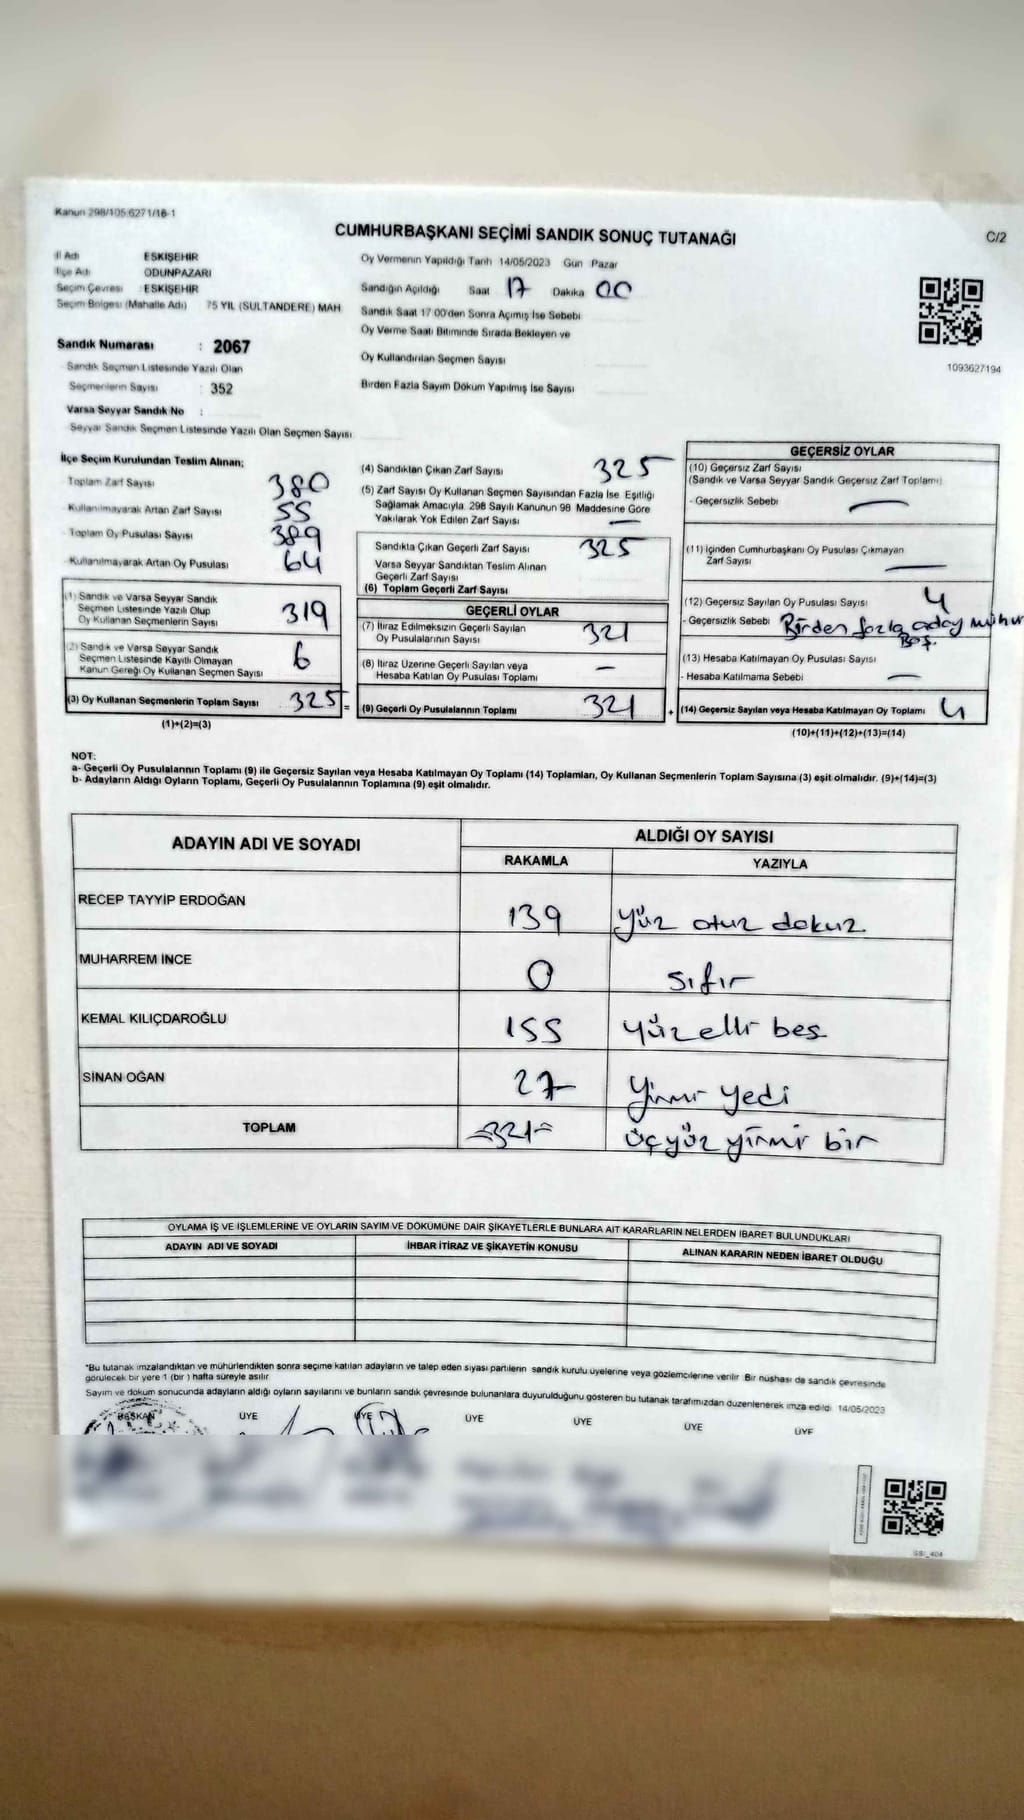 Kanun 298/105 6271/16-1
CUMHURBAŞKANI SEÇİMİ SANDIK SONUÇ TUTANAĞI
C/2
İl Adı ESKİŞEHİR
İlçe Adı ODUNPAZARI
Seçim Çevresi : ESKİŞEHİR
Seçim Bölgesi (Mahalle Adı) 75 YIL (SULTANDERE) MAH
Sandık Numarası : 2067
Sandık Seçmen Listesinde Yazılı Olan
Seçmenlerin Sayısı : 352
Varsa Seyyar Sandık No :
Seyyar Sandık Seçmen Listesinde Yazılı Olan Seçmen Sayısı
Oy Vermenin Yapıldığı Tarih 14/05/2023 Gün Pazar
Sandığın Açıldığı Saat 17 Dakika 00
Sandık Saat 17 00'den Sonra Açımış İse Sebebi
Oy Verme Saati Bitiminde Sırada Bekleyen ve
Oy Kullandırılan Seçmen Sayısı
Birden Fazla Sayım Döküm Yapılmış İse Sayısı
1093627194
İlçe Seçim Kurulundan Teslim Alınan;
Toplam Zarf Sayısı 380
Kullanılmayarak Artan Zarf Sayısı 55
Toplam Oy Pusulası Sayısı 389
Kullanılmayarak Artan Oy Pusulası 64
(1) Sandık ve Varsa Seyyar Sandık
Seçmen Listesinde Yazılı Olup
Oy Kullanan Seçmenlerin Sayısı 319
(2) Sandık ve Varsa Seyyar Sandık
Seçmen Listesinde Kayıtlı Olmayan
Kanun Gereği Oy Kullanan Seçmen Sayısı 6
(3) Oy Kullanan Seçmenlerin Toplam Sayısı 325 =
(1)+(2)=(3)
(4) Sandıktan Çıkan Zarf Sayısı 325
(5) Zarf Sayısı Oy Kullanan Seçmen Sayısından Fazla İse Eşitliği
Sağlamak Amacıyla 298 Sayılı Kanunun 98 Maddesine Göre
Yakılarak Yok Edilen Zarf Sayısı —
Sandıkta Çıkan Geçerli Zarf Sayısı 325
Varsa Seyyar Sandıktan Teslim Alınan
Geçerli Zarf Sayısı
(6) Toplam Geçerli Zarf Sayısı
GEÇERLİ OYLAR
(7) İtiraz Edilmeksizin Geçerli Sayılan
Oy Pusulalarının Sayısı 321
(8) İtiraz Üzerine Geçerli Sayılan veya
Hesaba Katılan Oy Pusulası Toplamı —
(9) Geçerli Oy Pusulalarının Toplamı 321 +
GEÇERSİZ OYLAR
(10) Geçersiz Zarf Sayısı
(Sandık ve Varsa Seyyar Sandık Geçersiz Zarf Toplamı)
- Geçersizlik Sebebi —
(11) İçinden Cumhurbaşkanı Oy Pusulası Çıkmayan
Zarf Sayısı —
(12) Geçersiz Sayılan Oy Pusulası Sayısı 4
- Geçersizlik Sebebi Birden fazla aday mühür
Boş.
(13) Hesaba Katılmayan Oy Pusulası Sayısı
- Hesaba Katılmama Sebebi —
(14) Geçersiz Sayılan veya Hesaba Katılmayan Oy Toplamı 4
(10)+(11)+(12)+(13)=(14)
NOT:
a- Geçerli Oy Pusulalarının Toplamı (9) ile Geçersiz Sayılan veya Hesaba Katılmayan Oy Toplamı (14) Toplamları, Oy Kullanan Seçmenlerin Toplam Sayısına (3) eşit olmalıdır. (9)+(14)=(3)
b- Adayların Aldığı Oyların Toplamı, Geçerli Oy Pusulalarının Toplamına (9) eşit olmalıdır.
ADAYIN ADI VE SOYADI ALDIĞI OY SAYISI
RAKAMLA YAZIYLA
RECEP TAYYİP ERDOĞAN 139 yüz otuz dokuz
MUHARREM İNCE 0 sıfır
KEMAL KILIÇDAROĞLU 155 yüzelli beş
SİNAN OĞAN 27 yirmi yedi
TOPLAM =321= üçyüz yirmi bir
OYLAMA İŞ VE İŞLEMLERİNE VE OYLARIN SAYIM VE DÖKÜMÜNE DAİR ŞİKAYETLERLE BUNLARA AİT KARARLARIN NELERDEN İBARET BULUNDUKLARI
ADAYIN ADI VE SOYADI İHBAR İTİRAZ VE ŞİKAYETİN KONUSU ALINAN KARARIN NEDEN İBARET OLDUĞU
*Bu tutanak imzalandıktan ve mühürlendikten sonra seçime katılan adayların ve talep eden siyasi partilerin sandık kurulu üyelerine veya gözlemcilerine verilir Bir nüshası da sandık çevresinde
görülecek bir yere 1 (bir) hafta süreyle asılır
Sayım ve döküm sonucunda adayların aldığı oyların sayılarını ve bunların sandık çevresinde bulunanlara duyurulduğunu gösteren bu tutanak tarafımızdan düzenlenerek imza edildi 14/05/2023
BAŞKAN ÜYE ÜYE ÜYE ÜYE ÜYE ÜYE